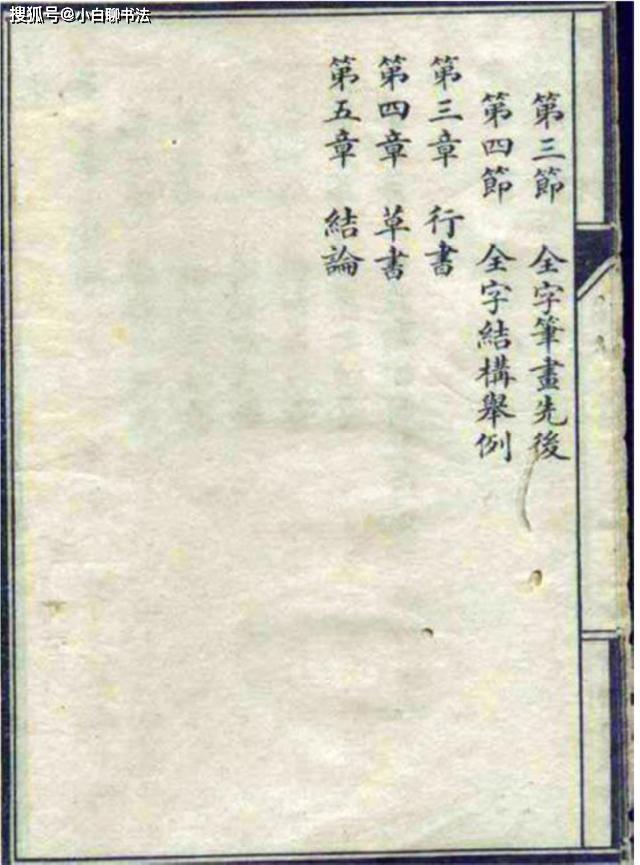 搜狐号@小白聊书法
第三節 全字筆畫先後
第四節 全字結構舉例
第三章 行書
第四章 草書
第五章 結論